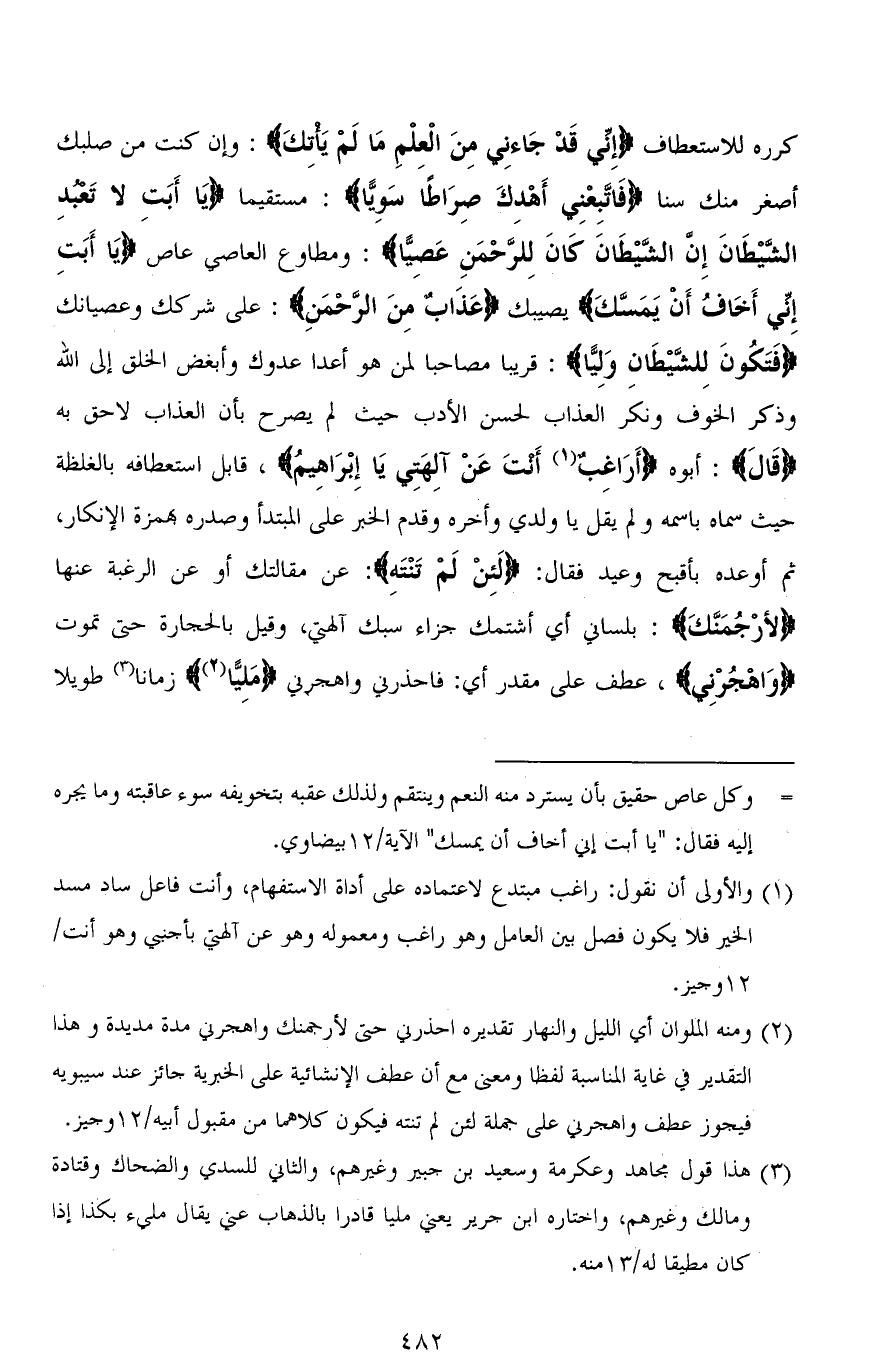 كرره للاستعطاف ﴿إِنِّي قَدْ جَاءنِي مِنَ الْعِلْمِ مَا لَمْ يَأْتِكَ﴾ : وإن كنت من صلبك
أصغر منك سنا ﴿فَاتَّبِعْنِي أَهْدِكَ صِرَاطًا سَوِيًّا﴾ : مستقيما ﴿يَا أَبَتِ لا تَعْبُدِ
الشَّيْطَانَ إِنَّ الشَّيْطَانَ كَانَ لِلرَّحْمَنِ عَصِيًّا﴾ : ومطاوع العاصي عاص ﴿يَا أَبَتِ
إِنِّي أَخَافُ أَنْ يَمَسَّكَ﴾ يصيبك ﴿عَذَابٌ مِنَ الرَّحْمَنِ﴾ : على شركك وعصيانك
﴿فَتَكُونَ لِلشَّيْطَانِ وَلِيًّا﴾ : قريبا مصاحبا لمن هو أعدا عدوك وأبغض الخلق إلى الله
وذكر الخوف ونكر العذاب لحسن الأدب حيث لم يصرح بأن العذاب لاحق به
﴿قَالَ﴾ : أبوه ﴿أَرَاغِبٌ(١) أَنْتَ عَنْ آلِهَتِي يَا إِبْرَاهِيمُ﴾ ، قابل استعطافه بالغلظة
حيث سماه باسمه ولم يقل يا ولدي وأخره وقدم الخبر على المبتدأ وصدره بهمزة الإنكار،
ثم أوعده بأقبح وعيد فقال: ﴿لَئِنْ لَمْ تَنْتَهِ﴾: عن مقالتك أو عن الرغبة عنها
﴿لأَرْجُمَنَّكَ﴾ : بلساني أي أشتمك جزاء سبك آلهتي، وقيل بالحجارة حتى تموت
﴿وَاهْجُرْنِي﴾ ، عطف على مقدر أي: فاحذرني واهجرني ﴿مَلِيًّا(٢)﴾ زمانا(٣) طويلا
= وكل عاص حقيق بأن يسترد منه النعم وينتقم ولذلك عقبه بتخويفه سوء عاقبته وما يجره
إليه فقال: "يا أبت إني أخاف أن يمسك" الآية/١٢بيضاوي.
(١) والأولى أن نقول: راغب مبتدع لاعتماده على أداة الاستفهام، وأنت فاعل ساد مسد
الخير فلا يكون فصل بين العامل وهو راغب ومعموله وهو عن آلهتي بأجنبي وهو أنت/
١٢وجيز.
(٢) ومنه الملوان أي الليل والنهار تقديره احذرني حتى لأرجمنك واهجرني مدة مديدة و هذا
التقدير في غاية المناسبة لفظا ومعنى مع أن عطف الإنشائية على الخبرية جائز عند سيبويه
فيجوز عطف واهجرني على جملة لئن لم تنته فيكون كلاهما من مقبول أبيه/١٢وجيز.
(٣) هذا قول مجاهد وعكرمة وسعيد بن جبير وغيرهم، والثاني للسدي والضحاك وقتادة
ومالك وغيرهم، واختاره ابن جرير يعني مليا قادرا بالذهاب عني يقال مليء بكذا إذا
كان مطيقا له/١٣منه.
٤٨٢